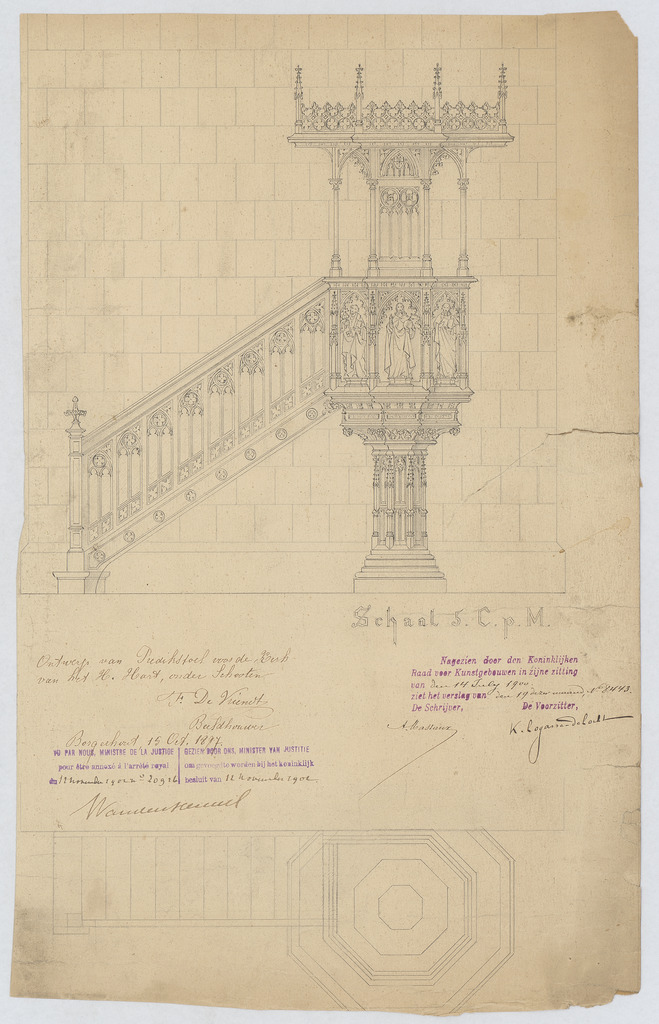 Schaal 5. C. p. M.
Ontwerp van Predikstoel voor de Kerk
van het H. Hart, onder Schooten
Fr. De Vriendt
Beeldhouwer
Borgerhout 15 Oct. 1897.
Nagezien door den Koninklijken
Raad voor Kunstgebouwen in zijne zitting
van den 14 July 1900.
ziet het verslag van den 19 dezer maand, N° 8443.
De Schrijver, De Voorzitter,
VU PAR NOUS, MINISTRE DE LA JUSTICE
pour être annexé à l'arrêté royal
du 12 novembre 1901 n° 20916
GEZIEN DOOR ONS, MINISTER VAN JUSTITIE
om gevoegd te worden bij het koninklijk
besluit van 12 November 1901